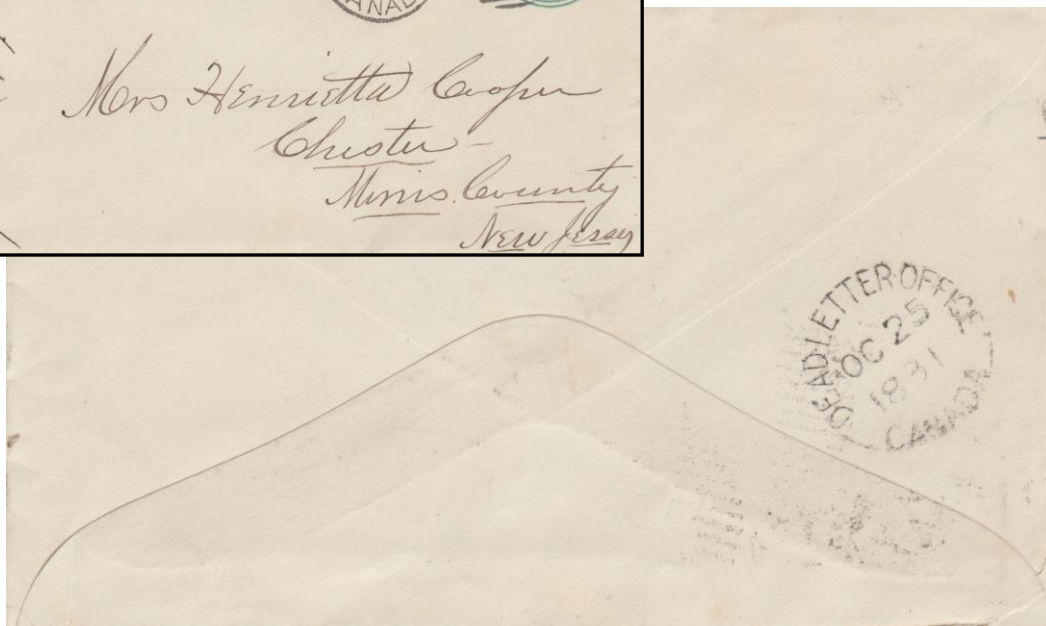 CANADA
Mrs Henrietta Cooper
Chester -
Morris County
New Jersey
DEAD LETTER OFFICE
OC 25
1881
CANADA